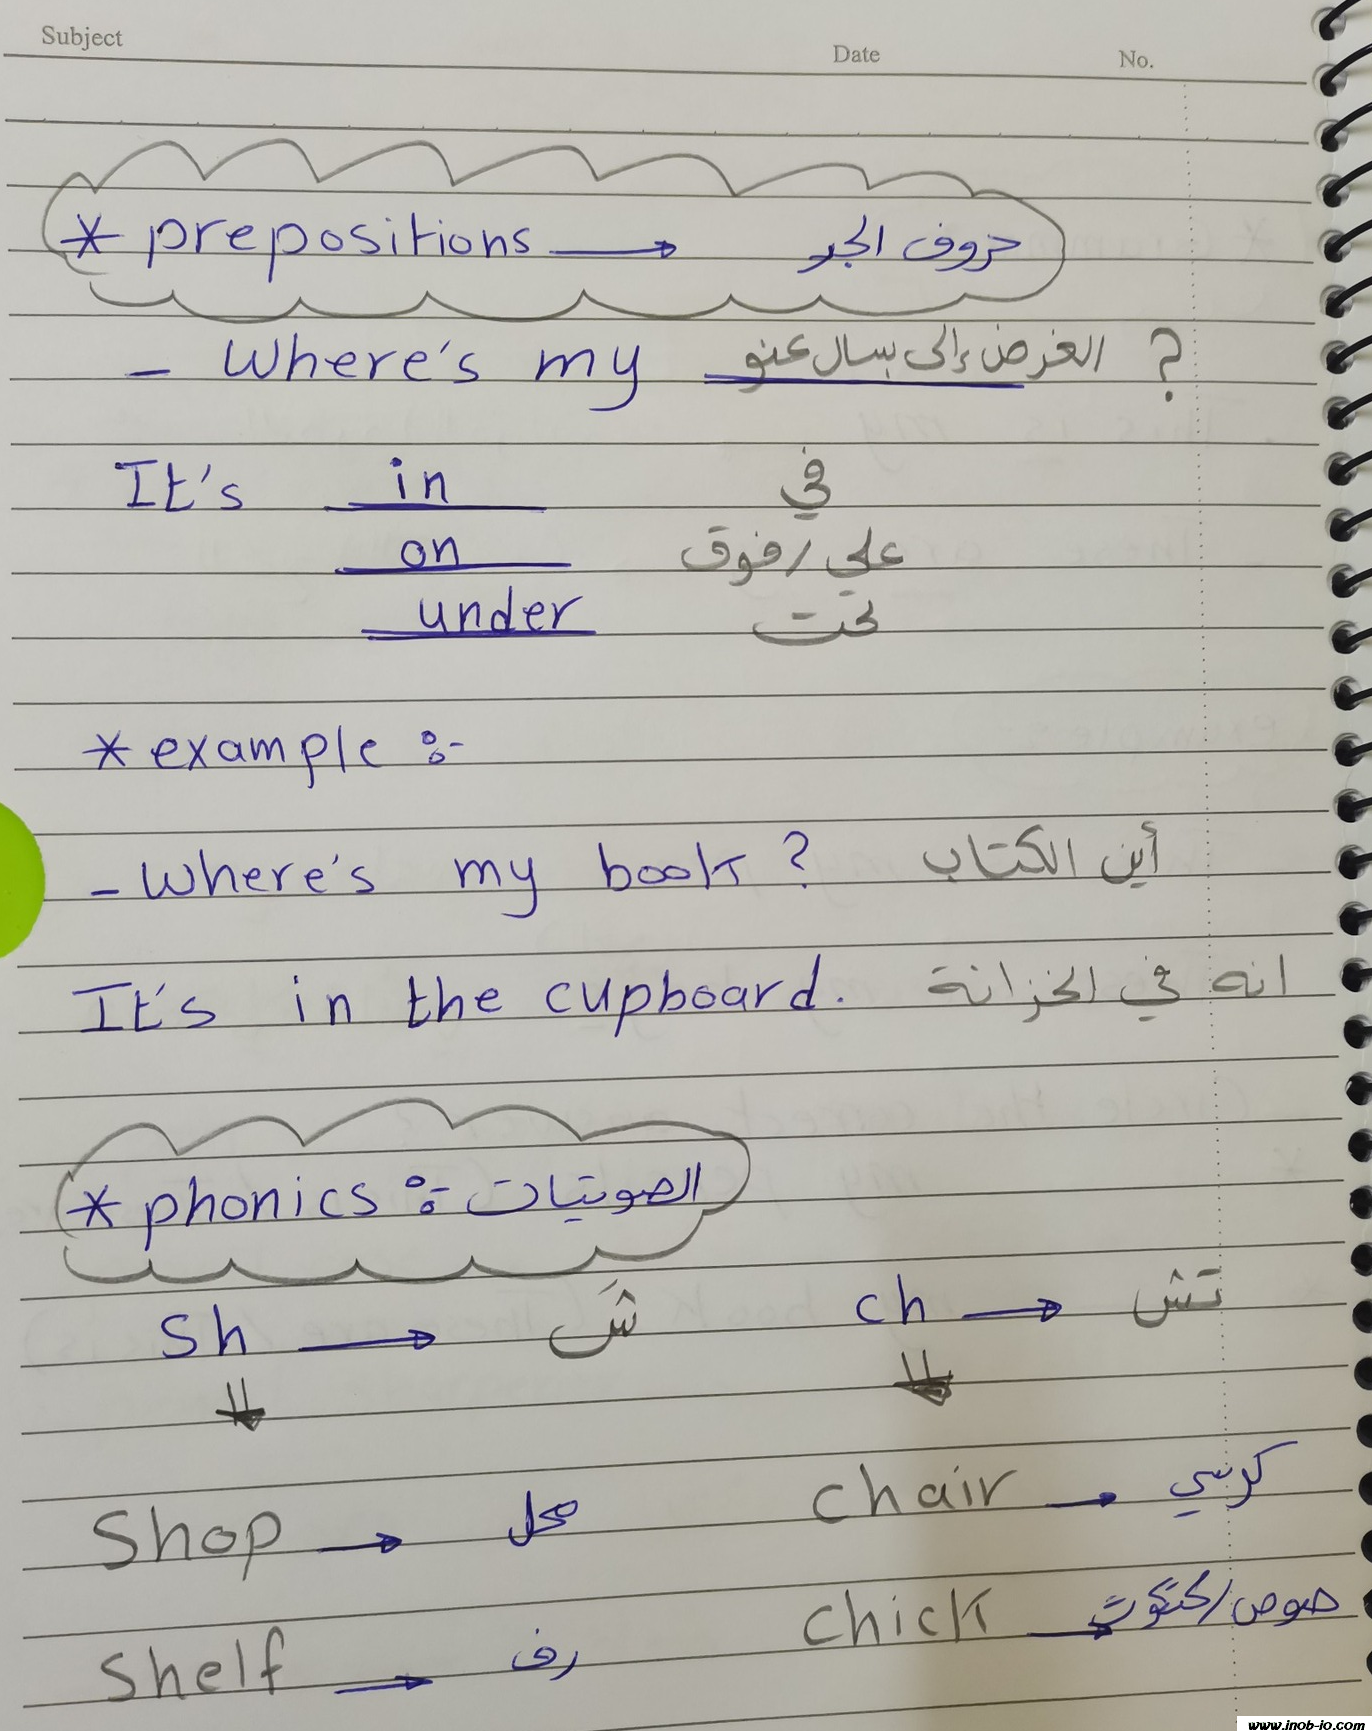 Subject Date No.
* prepositions → حروف الجر
- Where's my الغرض إلي بسأل عنو ?
It's in في
on على / فوق
under تحت
* example :-
- Where's my book ? أين الكتاب
It's in the cupboard. انه في الخزانة
* phonics :- الصوتيات
sh → شَ ch → تش
Shop → محل chair → كرسي
Shelf → رف chick → صوص / كتكوت
www.inob-io.com